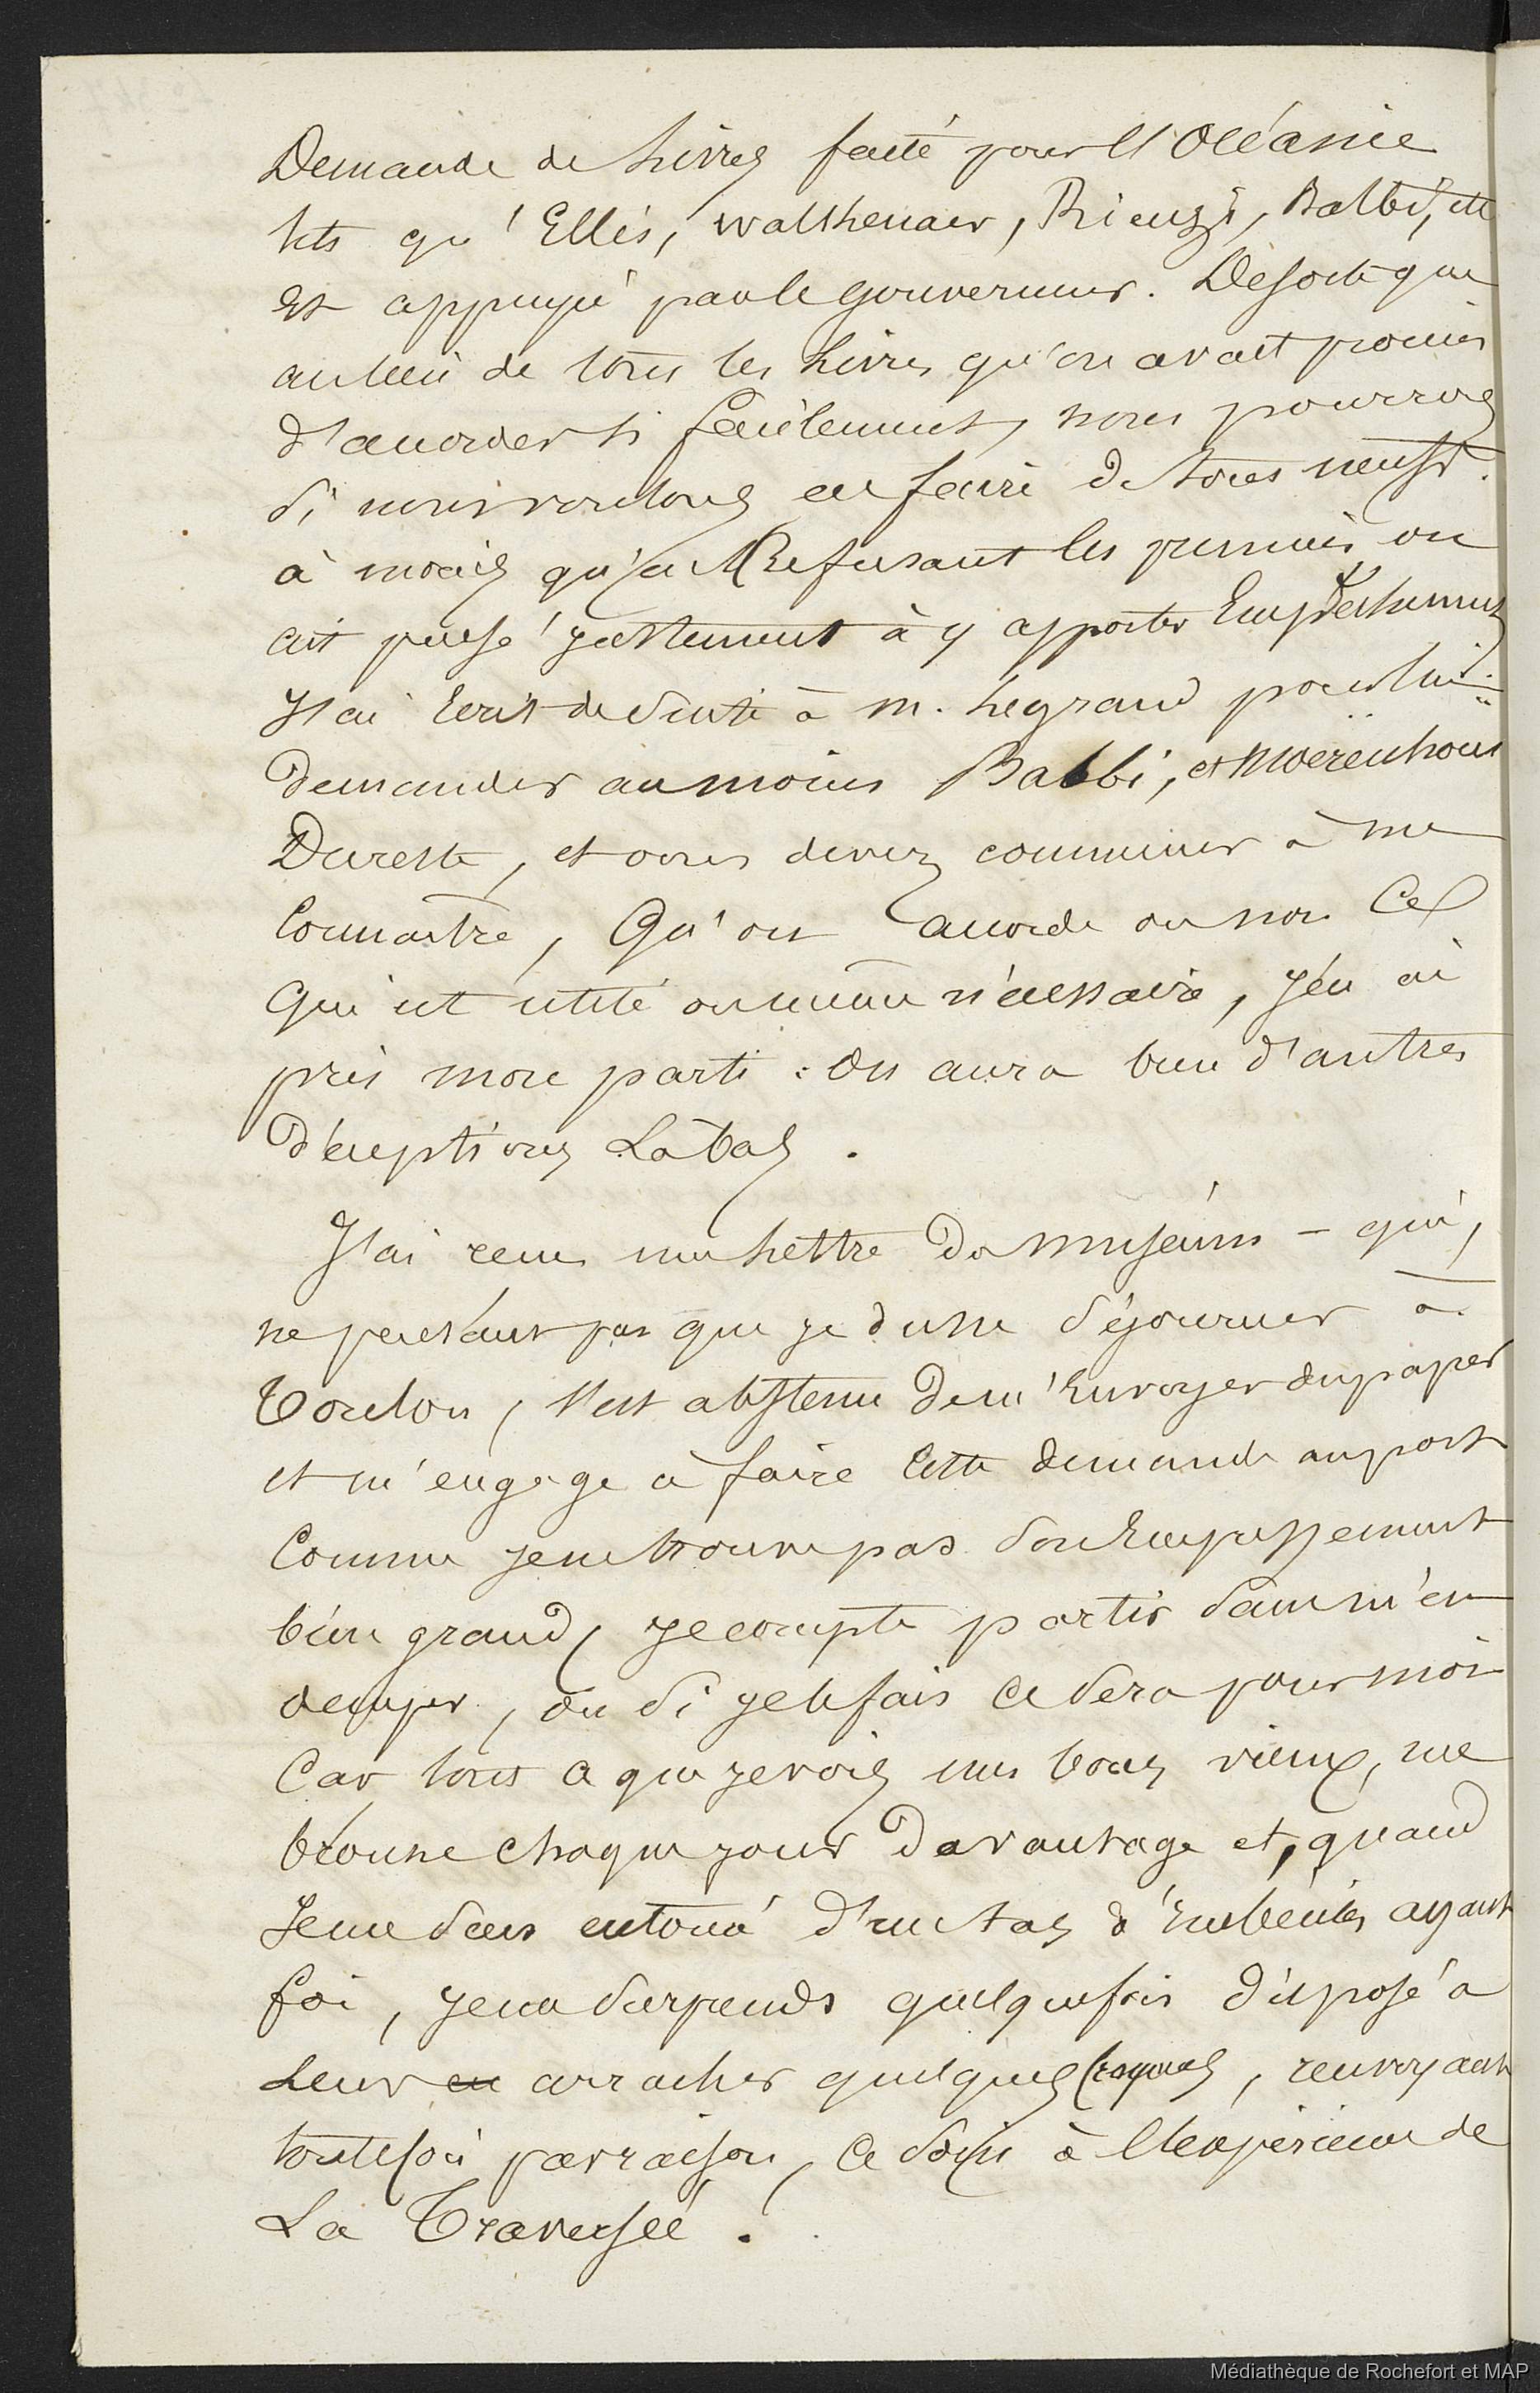 Demande de Livres faite pour l'Océanie
tels qu'Ellis, Walkenaer, Rienzi, Balbi, etc
et appuyé par le gouverneur. Desorte que
aulieu de tous les Livres qu'on avait promis
d'accorder si facilement, nous pourrons
si nous voulons en faire de tous neufs.
à moins qu'en Refusant les premiers on
ait pensé justement à y apporter Empêchement
J'ai Ecrit de suite à m. Legrand pour lui
Demander au moins Balbi, et Mœrenhout
Dureste, et vous devez commencer à me
Connaître, Qu'on accorde ou non Ce
Qui est utile ou même nécessaire, j'en ai
pris mon parti : On aura bien d'autres
Déceptions Làbas.
J'ai reçu une Lettre du muséum - qui,
ne pensant pas que je dusse séjourner à
Toulon, s'est abstenu de m'Envoyer du papier
et m'engage à faire Cette demande au port
Comme je ne trouve pas son Empressement
bien grand, je compte partir sans m'en
occuper, ou si je le fais Ce sera pour moi
Car tout ce que je vois, mes bons vieux, me
tourne chaque jour Davantage et, quand
Je me vois entouré d'un tas d'Imbéciles ayant
foi, je me surprends quelquefois disposé à
Leur en arracher quelques , renvoyant
toutefois par raison, Ce soin à l'expérience de
La Traversée.
Médiathèque de Rochefort et MAP